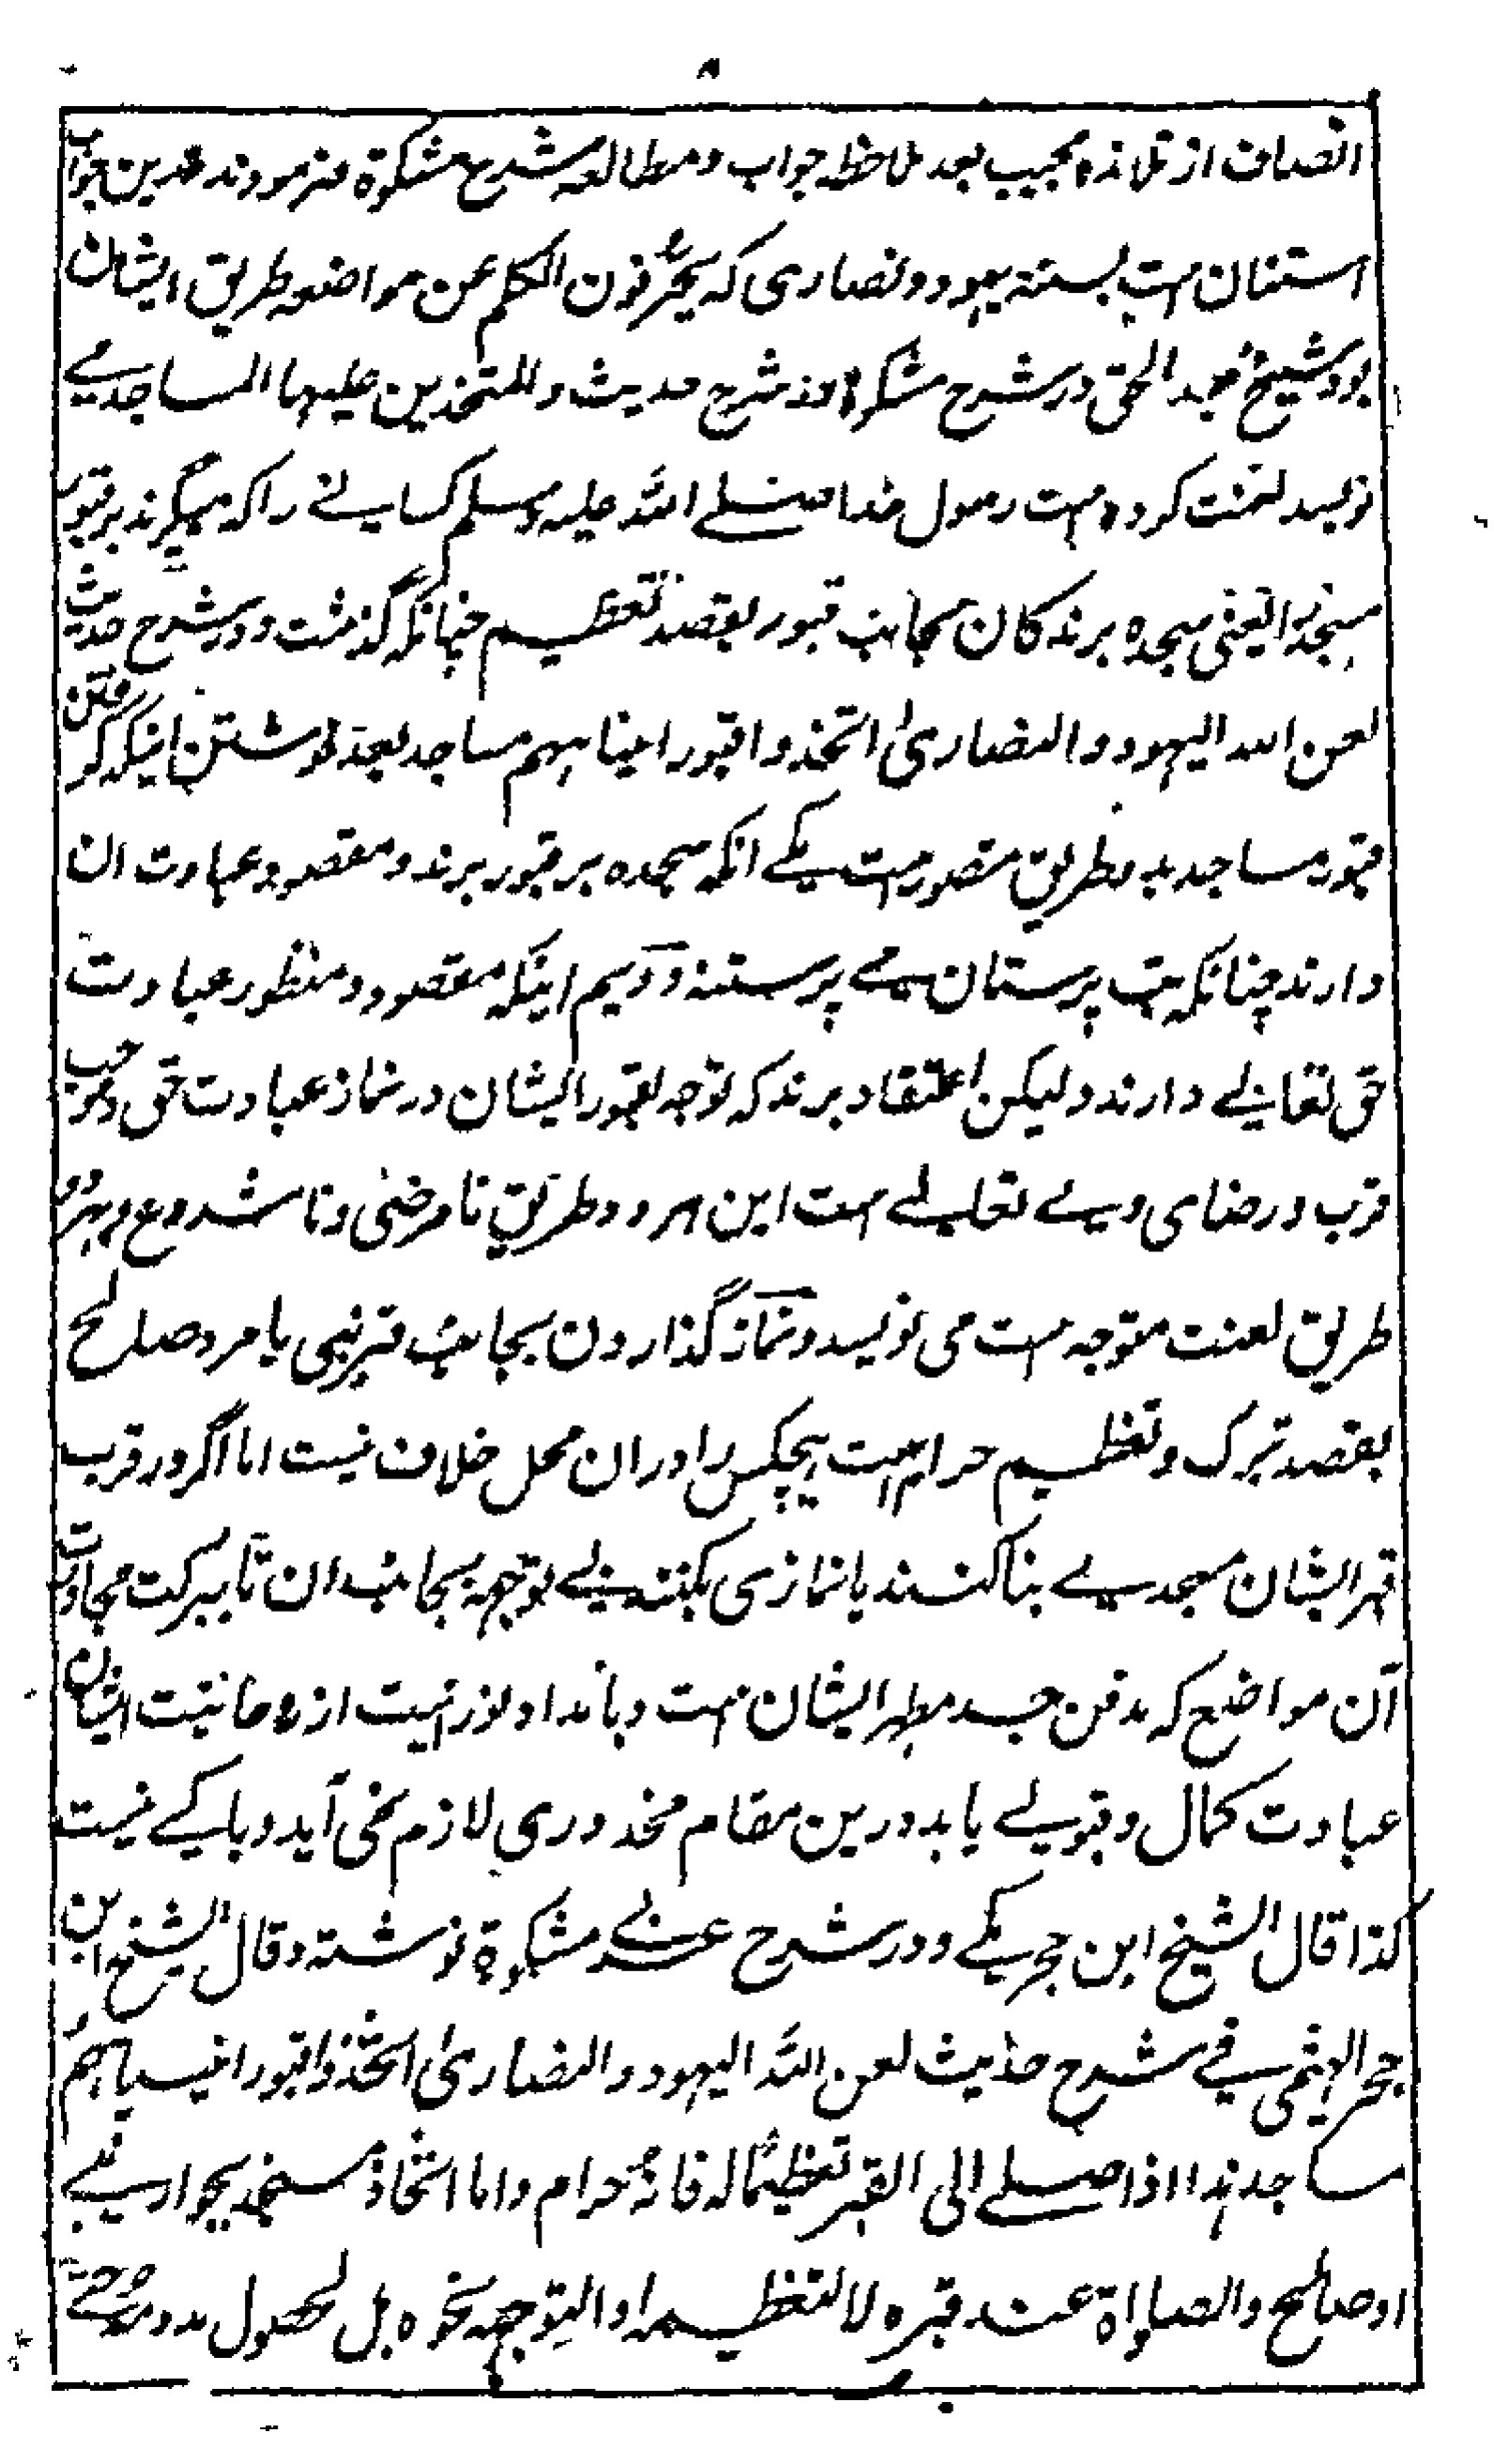 ۸
انصاف از تلامذه مجیب بعد ملاحظه جواب و مطالعه شرح مشکوة فرمودند درین جواب
استنان ست بسنة یهود و نصاری که یحرّفون الکلم عن مواضعه طریق ایشان
بود شیخ عبد الحق در شرح مشکوة در شرح حدیث والمتخذین علیها المساجد می
نویسد لعنت کرده ست رسول خدا صلے الله علیه وسلم کسانے را که میگیرند بر قبور
مسجد را یعنی سجده برندگان بجانب قبور بقصد تعظیم چنانکه گذشت و در شرح حدیث
لعن الله الیهود والنصاریٰ اتخذوا قبور انبیاءهم مساجد بعد نوشتن اینکه گرفتن
قبور مساجد بدو طریق متصور ست یکے انکه سجده بر قبور برند و مقصود عبادت ان
دارند چنانکه بت پرستان مے پرستند و دویم اینکه مقصود و منظور عبادت
حق تعالے دارند و لیکن اعتقاد برند که توجه بقبور ایشان در نماز عبادت حق و موجب
قرب و رضای وے تعالے ست این هر دو طریق نا مرضی و نا مشروع و بهر دو
طریق لعنت متوجه ست می نویسد و نماز گذاردن بجانب قبر نبی یا مرد صالح
بقصد تبرک و تعظیم حرام ست هیچکس را در ان محل خلاف نیست اما اگر در قرب
قبر ایشان مسجدے بنا کنند یا نمازی بکنند بے توجه بجانب ان تا ببرکت مجاورت
آن مواضع که مدفن جسد مطهر ایشان ست و بامداد نورانیت از روحانیت ایشان
عبادت کمال و قبولے یابد درین مقام محذوری لازم نمی آید و باکے نیست
کذا قال الشیخ ابن حجر مکے و در شرح عربے مشکوة نوشته و قال الشیخ ابن
حجر الهیتمی فے شرح حدیث لعن الله الیهود والنصاریٰ اتخذوا قبور انبیاءهم
مساجد هذا اذا صلے الی القبر تعظیمًا له فانه حرام واما اتخاذ مسجد بجوار نبے
او صالح والصلواة عند قبره لا لتعظیمه او التوجه نحوه بل لحصول مدد